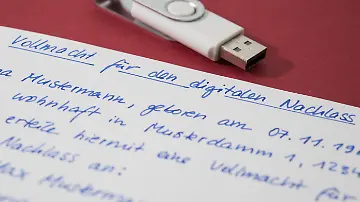 Vollmacht für den digitalen Nachlass
Mustermann, geboren am 07.11.19
wohnhaft in Musterdamm 1, 1234
erteile hiermit eine Vollmacht für
Nachlass an:
Max Musterma